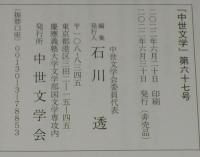 『中世文学』第六十七号
二〇二二年六月二十日　印刷
二〇二二年六月三十日　発行（非売品）
中世文学会委員代表
編集
発行人　石川　透
〒一〇八-八三四五
東京都港区三田二-一五-四五
慶應義塾大学文学部国文学専攻内
発行所　中世文学会
（振替口座）００１５０-３-７８８５３